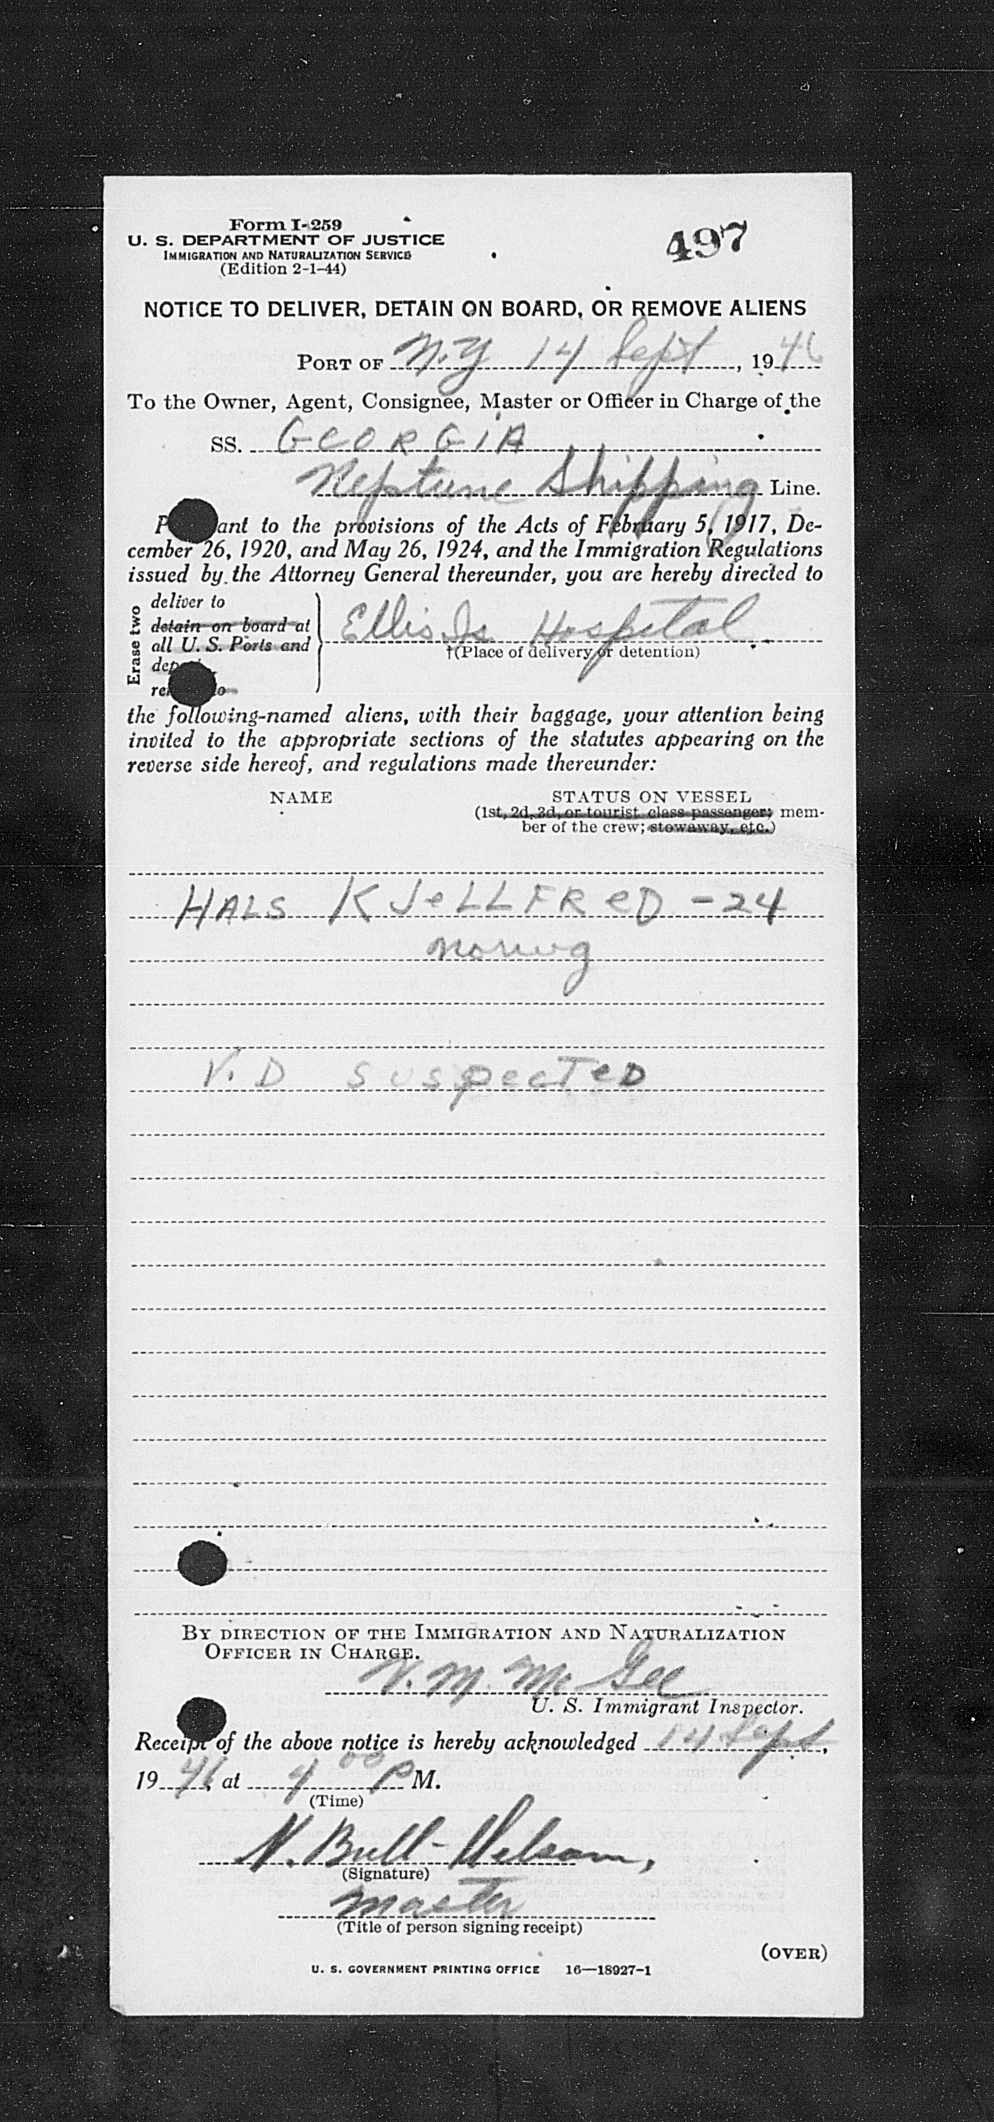 Form I-259
U. S. DEPARTMENT OF JUSTICE
IMMIGRATION AND NATURALIZATION SERVICE
(Edition 2-1-44)
497
NOTICE TO DELIVER, DETAIN ON BOARD, OR REMOVE ALIENS
PORT OF N.Y 14 Sept, 1946
To the Owner, Agent, Consignee, Master or Officer in Charge of the
SS. GEORGIA
Neptune Shipping Line.
P ant to the provisions of the Acts of February 5, 1917, De-
cember 26, 1920, and May 26, 1924, and the Immigration Regulations
issued by the Attorney General thereunder, you are hereby directed to
Erase two
deliver to
detain on board at
all U. S. Ports and
Ellis Is Hospital
†(Place of delivery or detention)
the following-named aliens, with their baggage, your attention being
invited to the appropriate sections of the statutes appearing on the
reverse side hereof, and regulations made thereunder:
NAME STATUS ON VESSEL
(1st, 2d, 3d, or tourist class passenger; mem-
ber of the crew; stowaway, etc.)
HALS KJeLLFReD - 24
Norwg
V. D suspecTeD
BY DIRECTION OF THE IMMIGRATION AND NATURALIZATION
OFFICER IN CHARGE.
V. M. McGee
U. S. Immigrant Inspector.
Receipt of the above notice is hereby acknowledged 14 Sept,
1946, at 4 00 P M.
(Time)
N. Bull-
(Signature)
Master
(Title of person signing receipt)
(OVER)
U. S. GOVERNMENT PRINTING OFFICE 16—18927-1